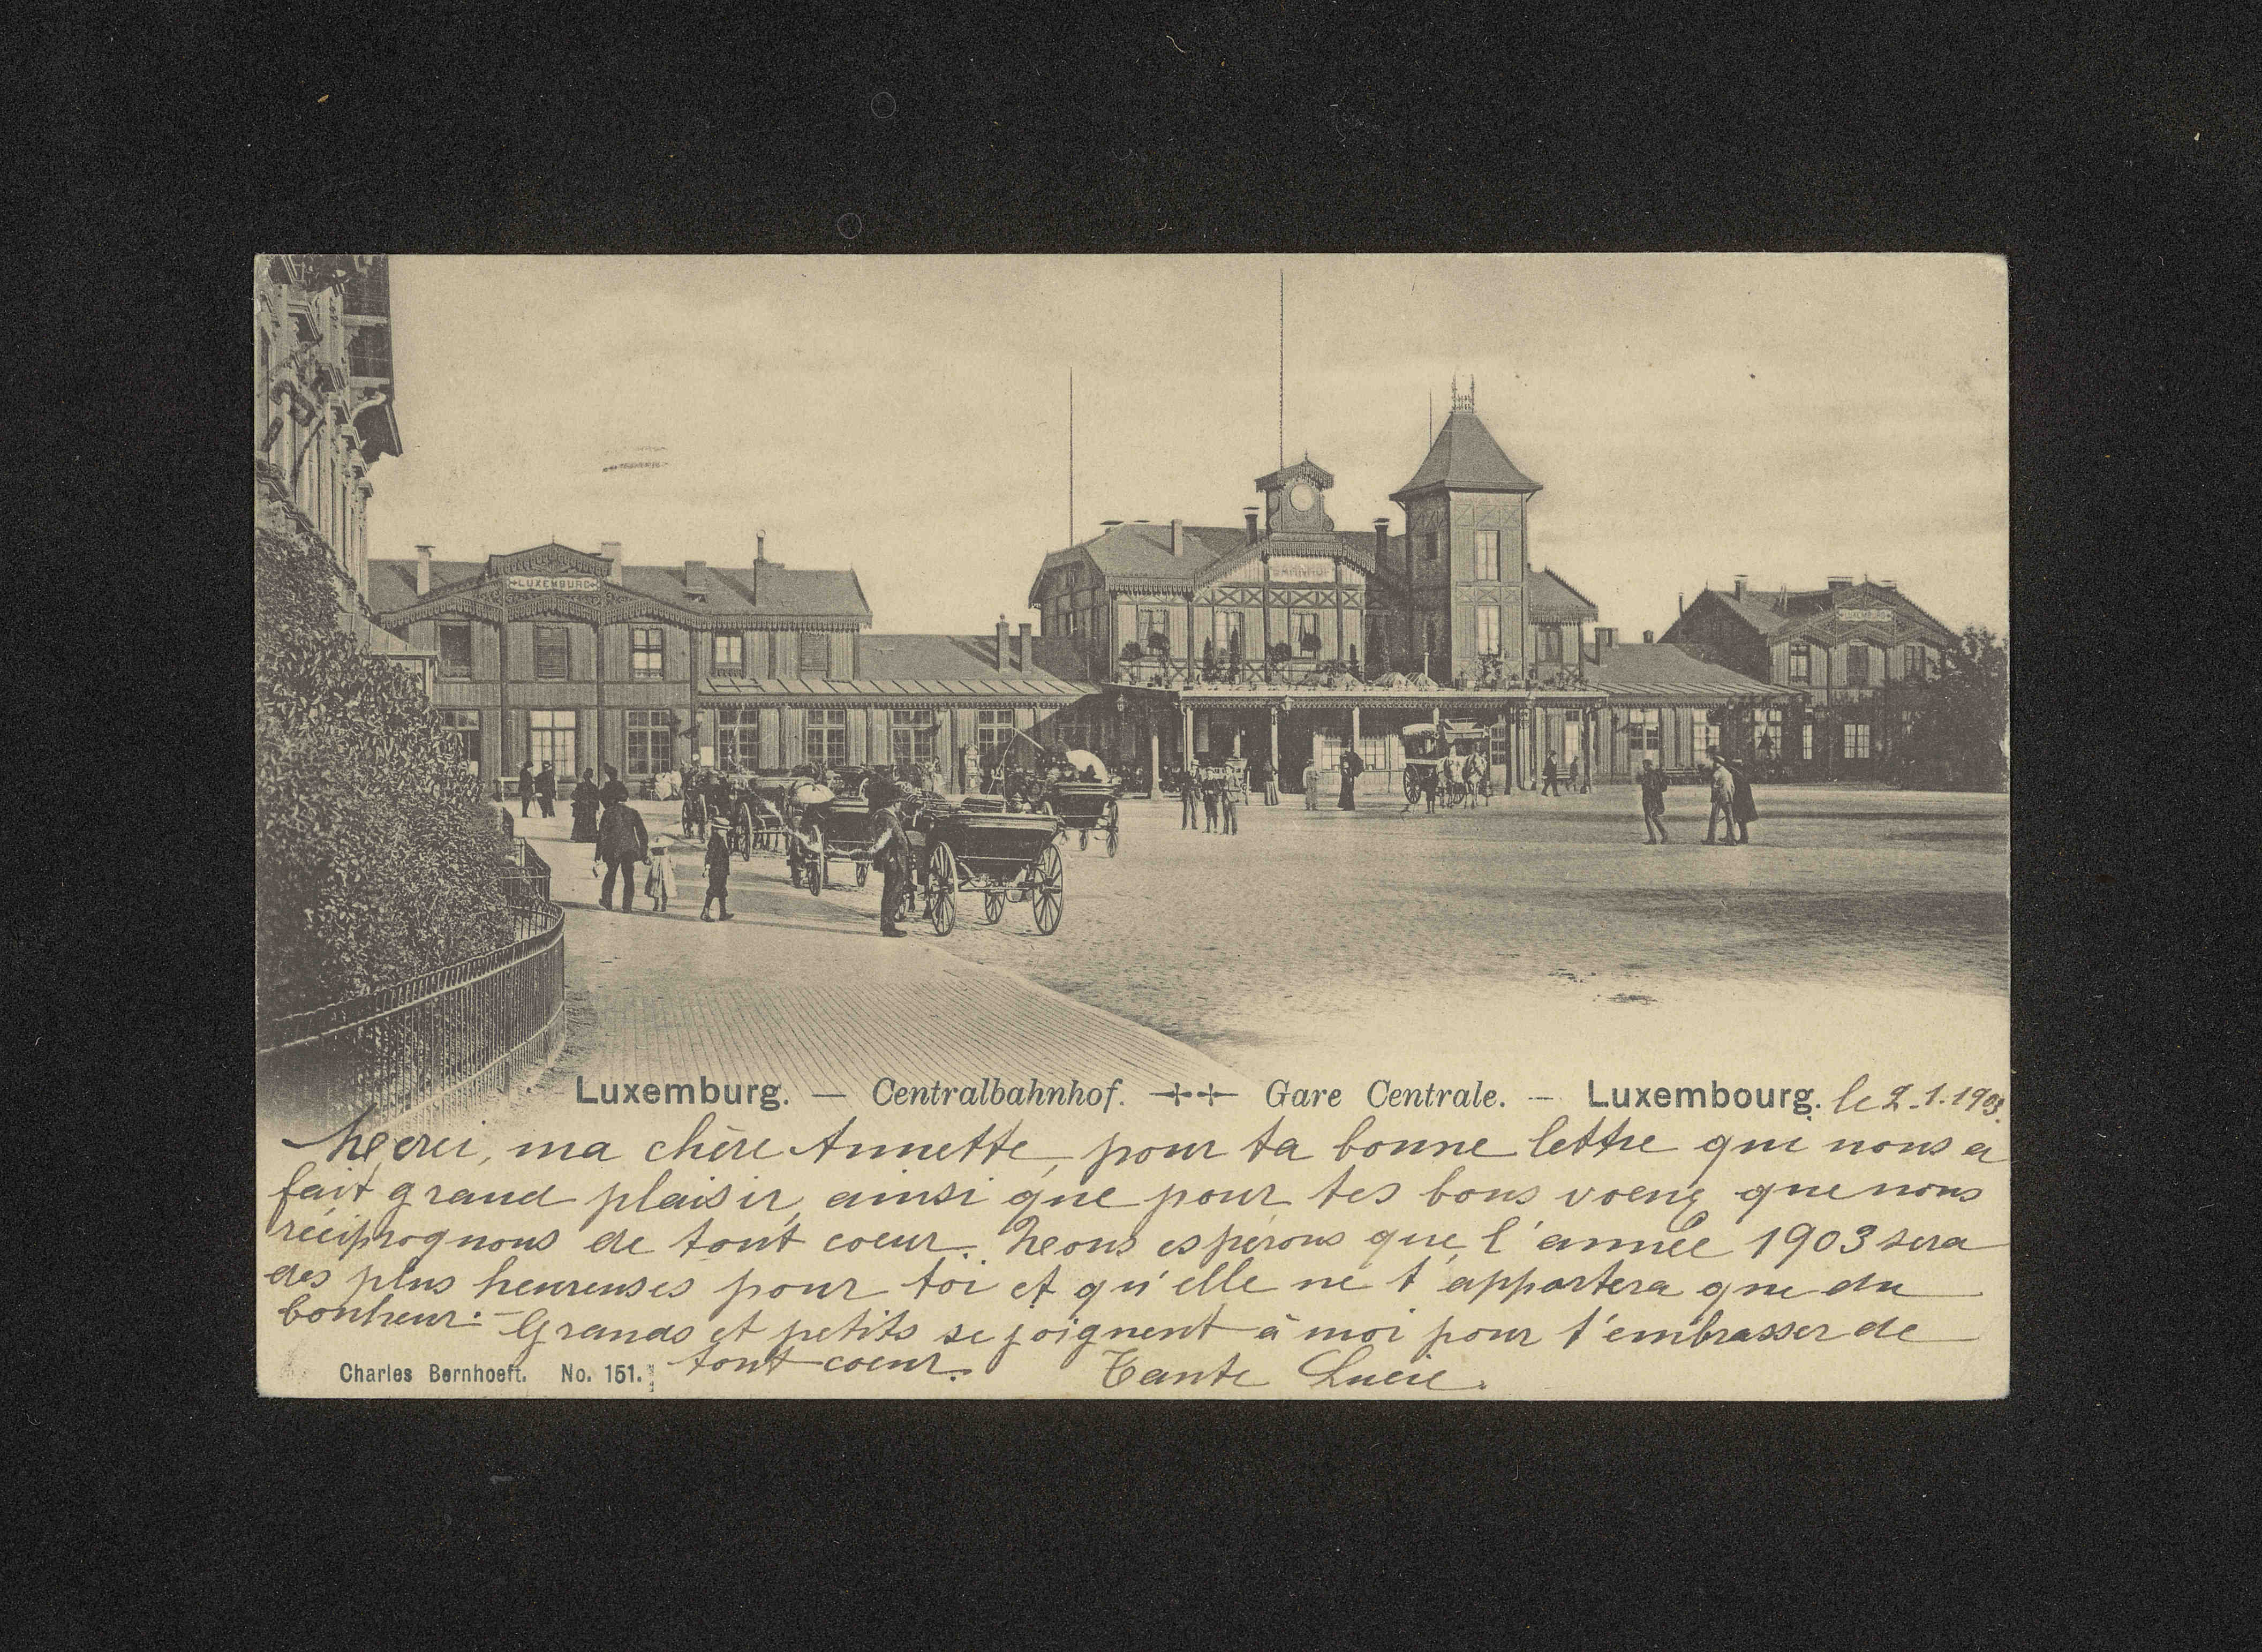 LUXEMBURG
BAHNHOF
Luxemburg. — Centralbahnhof. Gare Centrale. — Luxembourg. le 2.1.1903
Merci, ma chère Annette, pour ta bonne lettre qui nous a
fait grand plaisir, ainsi que pour tes bons voeux que nous
réciproquons de tout coeur. Nous espérons que l'année 1903 sera
des plus heureuses pour toi et qu'elle ne t'apportera que du
bonheur. – Grands et petits se joignent à moi pour t'embrasser de
tout coeur. Tante Lucie.
Charles Bernhoeft. No. 151.